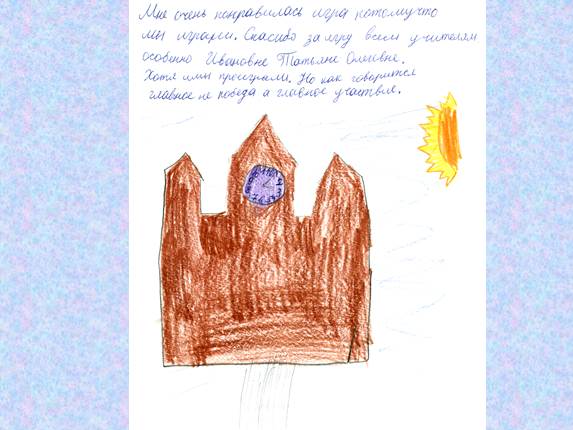 Мне очень понравилась игра потомучто
мы играли. Спасибо за игру всем учителям
особенно Ивановне Татьяне Олеговне.
Хотя и мы проиграли. Но как говорится
главное не победа а главное участвия.